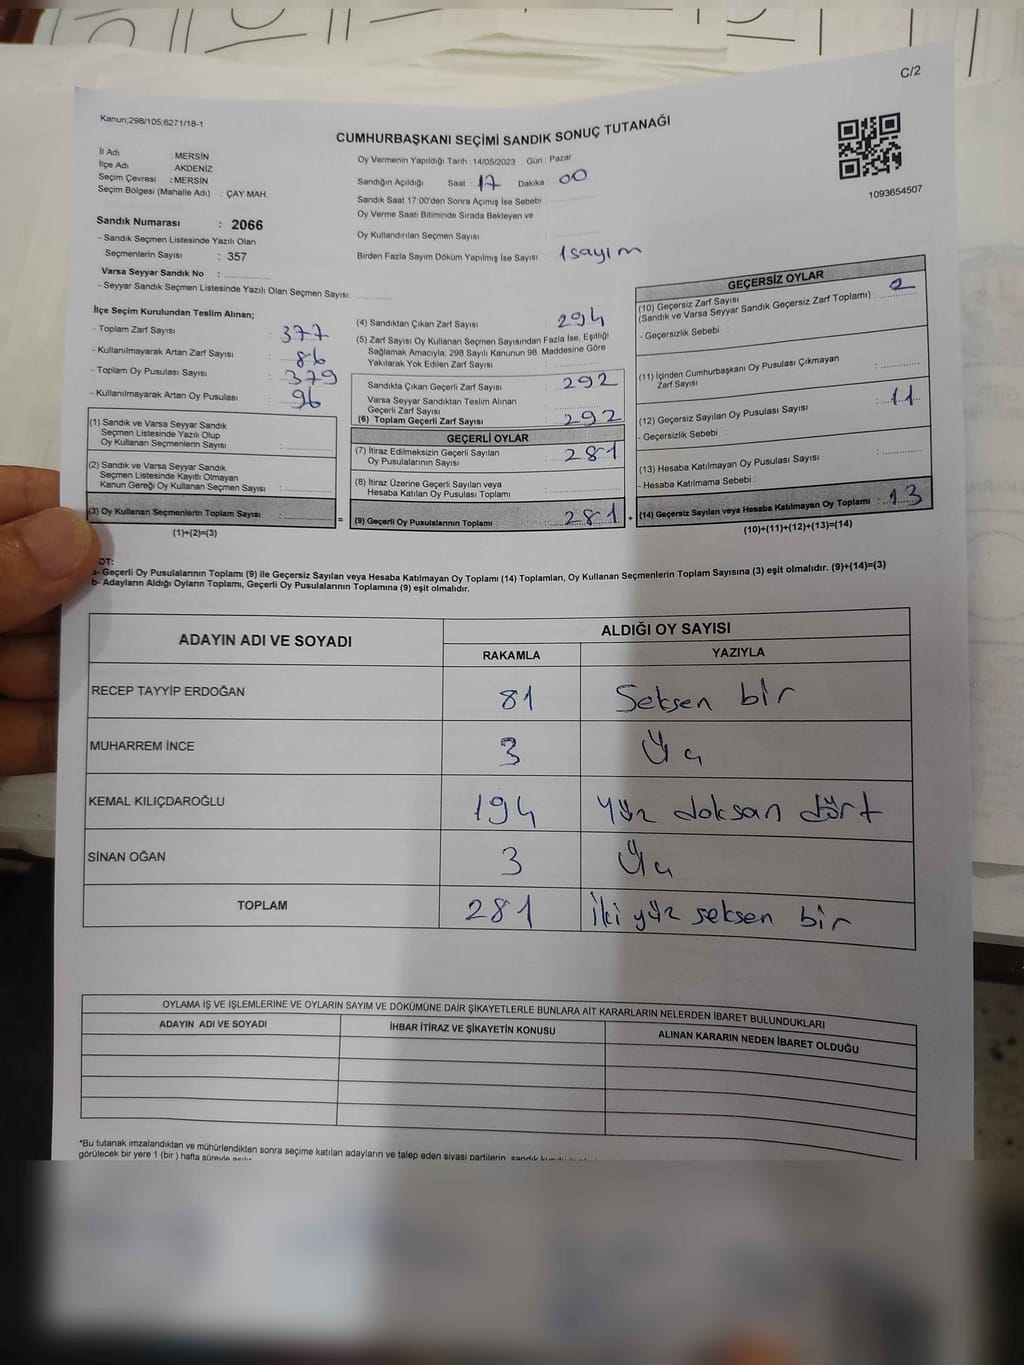 C/2
Kanun:298/105;6271/18-1
CUMHURBAŞKANI SEÇİMİ SANDIK SONUÇ TUTANAĞI
1093654507
İl Adı : MERSİN
İlçe Adı : AKDENİZ
Seçim Çevresi : MERSİN
Seçim Bölgesi (Mahalle Adı) : ÇAY MAH.
Sandık Numarası : 2066
- Sandık Seçmen Listesinde Yazılı Olan
Seçmenlerin Sayısı : 357
Varsa Seyyar Sandık No :
- Seyyar Sandık Seçmen Listesinde Yazılı Olan Seçmen Sayısı:
Oy Vermenin Yapıldığı Tarih : 14/05/2023 Gün : Pazar
Sandığın Açıldığı Saat : 17 Dakika : 00
Sandık Saat 17:00'den Sonra Açımış İse Sebebi :
Oy Verme Saati Bitiminde Sırada Bekleyen ve
Oy Kullandırılan Seçmen Sayısı :
Birden Fazla Sayım Döküm Yapılmış İse Sayısı : 1 sayım
İlçe Seçim Kurulundan Teslim Alınan;
- Toplam Zarf Sayısı : 377
- Kullanılmayarak Artan Zarf Sayısı : 86
- Toplam Oy Pusulası Sayısı : 379
- Kullanılmayarak Artan Oy Pusulası : 96
(1) Sandık ve Varsa Seyyar Sandık
Seçmen Listesinde Yazılı Olup
Oy Kullanan Seçmenlerin Sayısı :
(2) Sandık ve Varsa Seyyar Sandık
Seçmen Listesinde Kayıtlı Olmayan
Kanun Gereği Oy Kullanan Seçmen Sayısı :
(3) Oy Kullanan Seçmenlerin Toplam Sayısı :
(1)+(2)=(3)
=
(4) Sandıktan Çıkan Zarf Sayısı : 294
(5) Zarf Sayısı Oy Kullanan Seçmen Sayısından Fazla İse, Eşitliği
Sağlamak Amacıyla, 298 Sayılı Kanunun 98. Maddesine Göre
Yakılarak Yok Edilen Zarf Sayısı :
Sandıkta Çıkan Geçerli Zarf Sayısı : 292
Varsa Seyyar Sandıktan Teslim Alınan
Geçerli Zarf Sayısı :
(6) Toplam Geçerli Zarf Sayısı : 292
GEÇERLİ OYLAR
(7) İtiraz Edilmeksizin Geçerli Sayılan
Oy Pusulalarının Sayısı : 281
(8) İtiraz Üzerine Geçerli Sayılan veya
Hesaba Katılan Oy Pusulası Toplamı :
(9) Geçerli Oy Pusulalarının Toplamı : 281
+
GEÇERSİZ OYLAR
(10) Geçersiz Zarf Sayısı
(Sandık ve Varsa Seyyar Sandık Geçersiz Zarf Toplamı) : 2
- Geçersizlik Sebebi :
(11) İçinden Cumhurbaşkanı Oy Pusulası Çıkmayan
Zarf Sayısı :
(12) Geçersiz Sayılan Oy Pusulası Sayısı : 11
- Geçersizlik Sebebi :
(13) Hesaba Katılmayan Oy Pusulası Sayısı :
- Hesaba Katılmama Sebebi :
(14) Geçersiz Sayılan veya Hesaba Katılmayan Oy Toplamı : 13
(10)+(11)+(12)+(13)=(14)
OT:
a- Geçerli Oy Pusulalarının Toplamı (9) ile Geçersiz Sayılan veya Hesaba Katılmayan Oy Toplamı (14) Toplamları, Oy Kullanan Seçmenlerin Toplam Sayısına (3) eşit olmalıdır. (9)+(14)=(3)
b- Adayların Aldığı Oyların Toplamı, Geçerli Oy Pusulalarının Toplamına (9) eşit olmalıdır.
ADAYIN ADI VE SOYADI ALDIĞI OY SAYISI
RAKAMLA YAZIYLA
RECEP TAYYİP ERDOĞAN 81 Seksen bir
MUHARREM İNCE 3 Üç
KEMAL KILIÇDAROĞLU 194 yüz doksan dört
SİNAN OĞAN 3 Üç
TOPLAM 281 iki yüz seksen bir
OYLAMA İŞ VE İŞLEMLERİNE VE OYLARIN SAYIM VE DÖKÜMÜNE DAİR ŞİKAYETLERLE BUNLARA AİT KARARLARIN NELERDEN İBARET BULUNDUKLARI
ADAYIN ADI VE SOYADI İHBAR İTİRAZ VE ŞİKAYETİN KONUSU ALINAN KARARIN NEDEN İBARET OLDUĞU
*Bu tutanak imzalandıktan ve mühürlendikten sonra seçime katılan adayların ve talep eden siyasi partilerin,
görülecek bir yere 1 (bir ) hafta süreyle